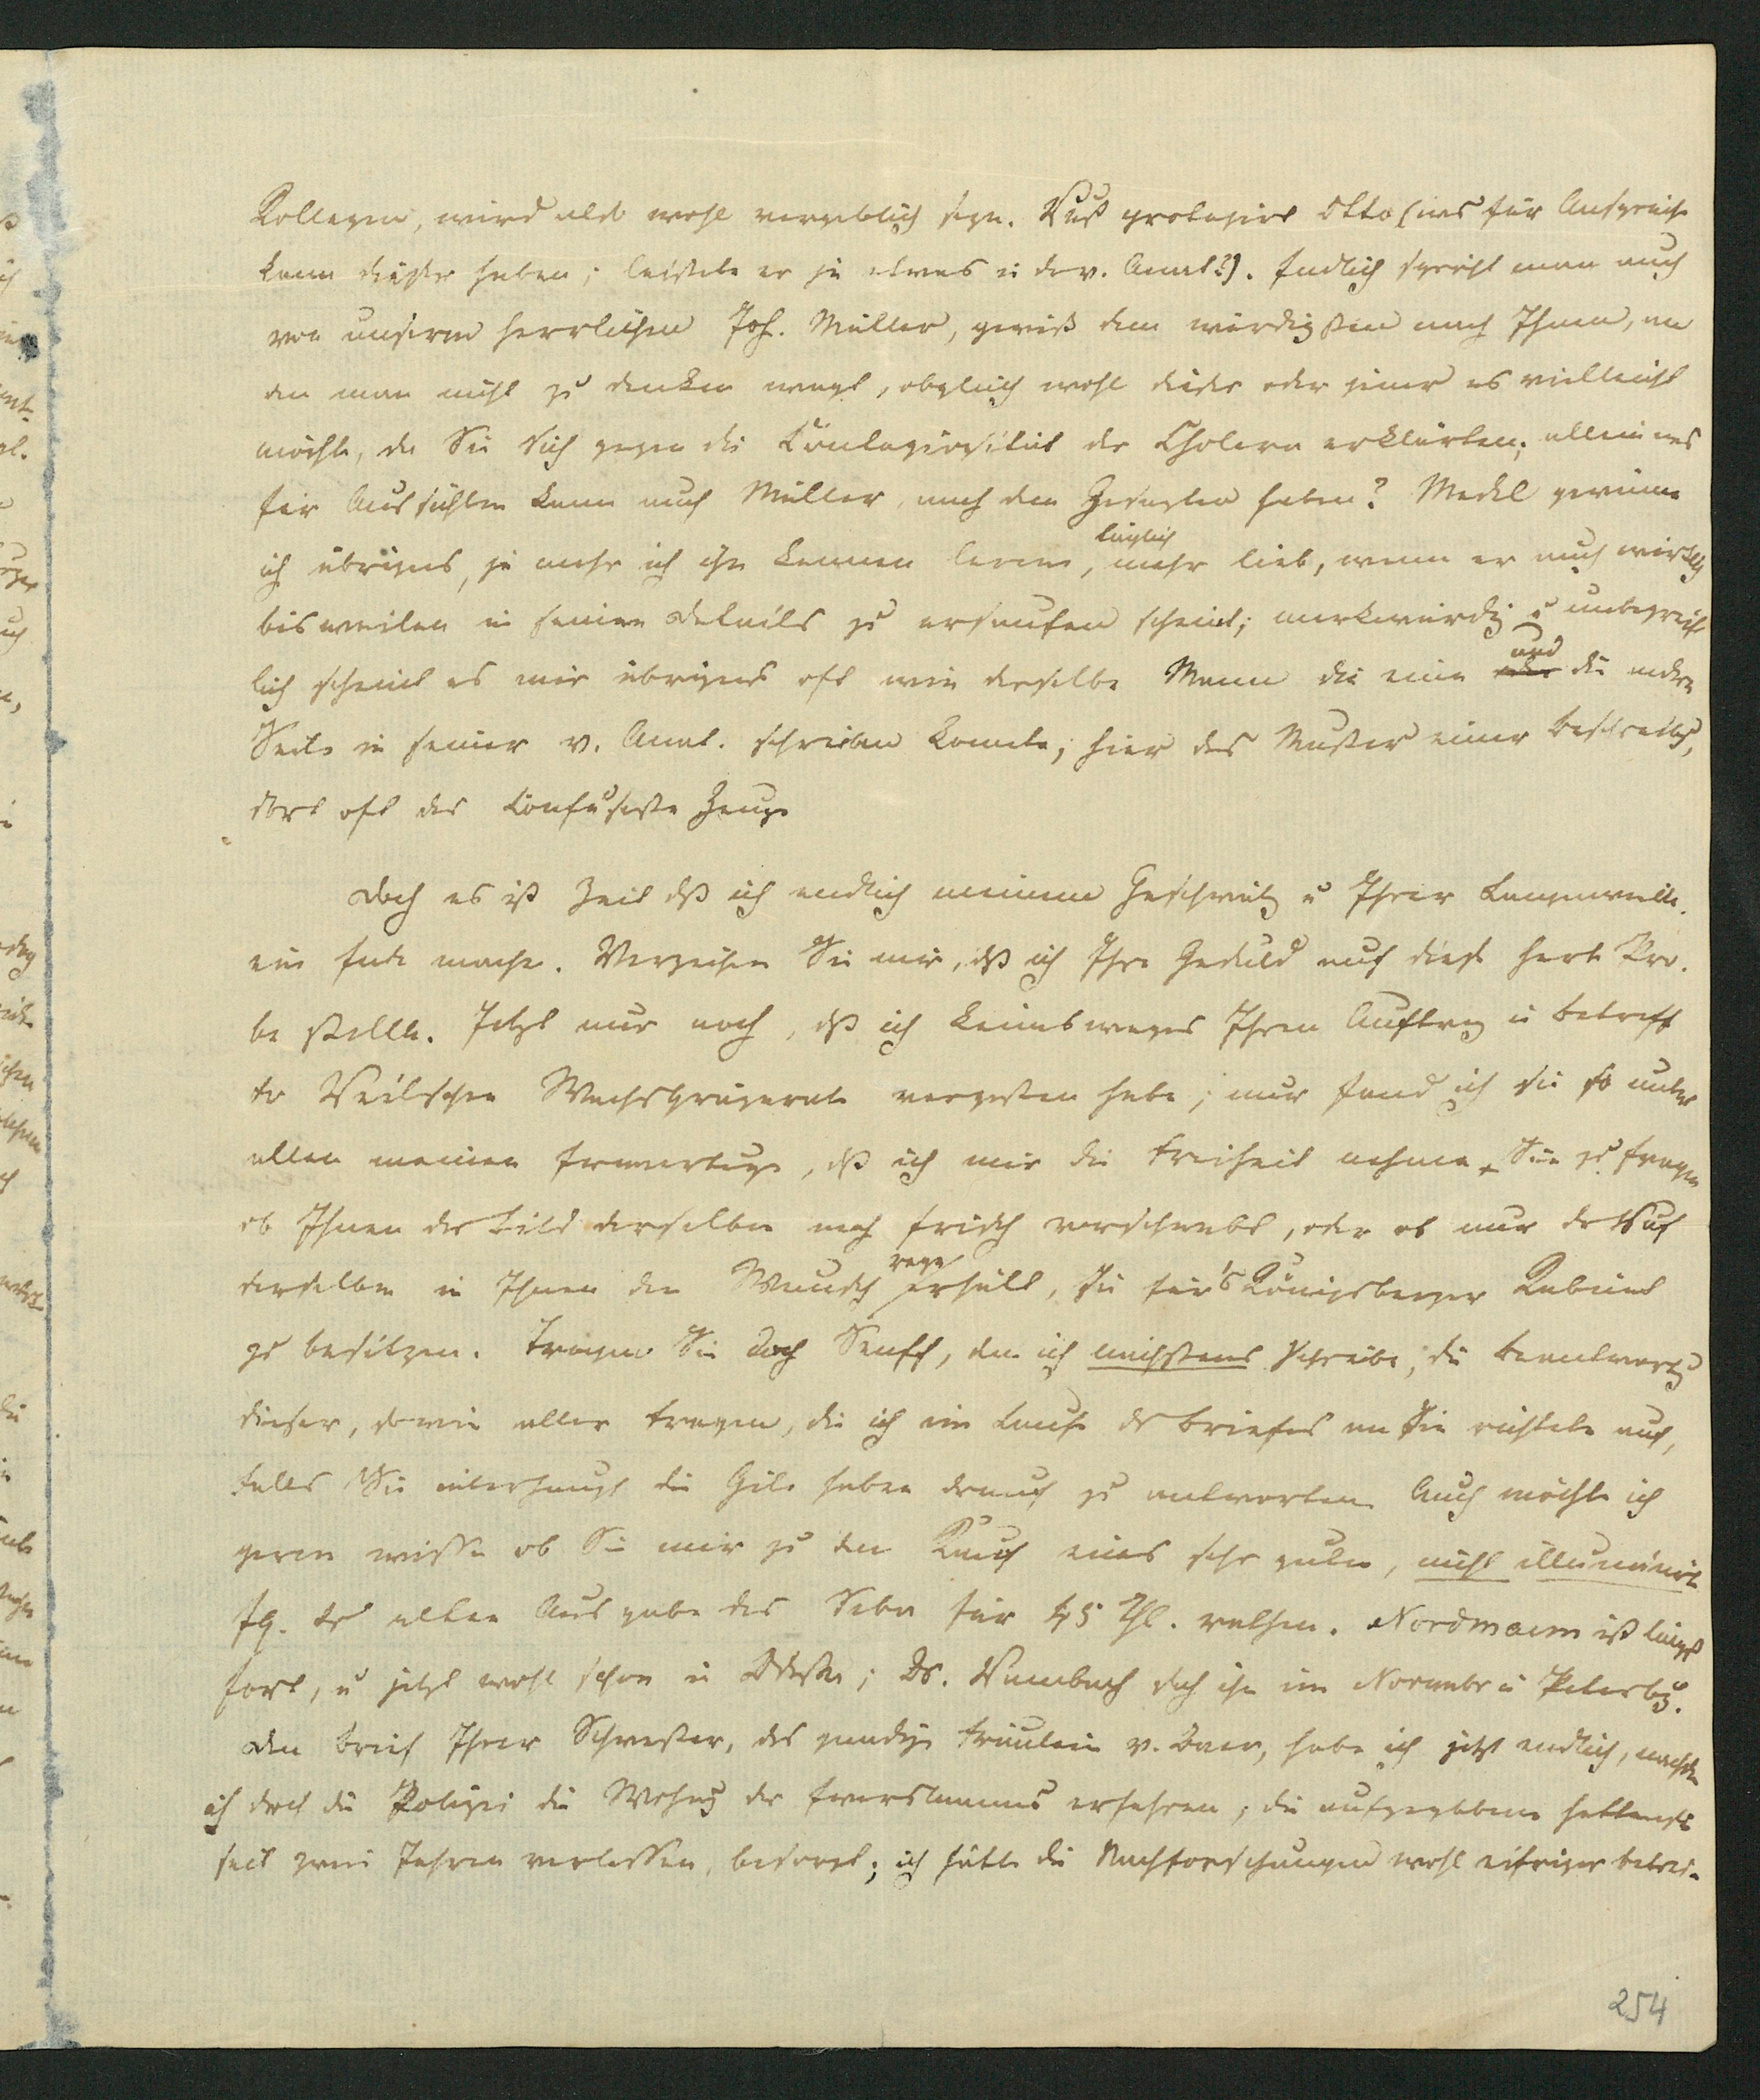 Kollegen, wird also wohl vergeblich seyn. Rust protegirt Otto (was für Ansprüche
kann dieser haben; leistete er je etwas in der v. Anat?). Endlich spricht man auch
von unserem herrlichen Joh. Müller, gewiß dem würdigsten nach Ihnen, an
den man nicht zu denken wagt, obgleich wohl dieser oder jener es vielleicht
möchte, da Sie sich gegen die Contagiosität der Cholera erklärten; allein was
für Aussichten kann auch Müller, nach dem Gesagten haben? Meckel gewinne
ich übrigens, je mehr ich ihn kennen lerne, täglich mehr lieb, wenn er auch wirklich
bisweilen in seinen Details zu ersaufen scheint; merkwürdig u unbegreif
lich scheint es mir übrigens oft wie derselbe Mann die eine und die andre
Seite in seiner v. Anat. schreiben konnte; hier das Muster einer Beschreibg,
dort oft das confuseste Zeug.
Doch es ist Zeit dß ich endlich meinem Geschwätz u Ihrer Langenweile
ein Ende mache. Verzeihen Sie mir, dß ich Ihre Geduld auf diese harte Pro-
be stellte. Jetzt nur noch, dß ich keinesweges Ihren Auftrag in Betreff
der Weilschen Wachspräparate vergessen habe; nur fand ich sie so unter
aller meiner Erwartung, dß ich mir die Freiheit nehme Sie zu fragen
ob Ihnen das Bild derselben noch frisch vorschwebt, oder ob nur der Ruf
derselben in Ihnen den Wunsch rege erhält, sie für's Königsberger Kabinet
zu besitzen. Tragen Sie doch Senff, dem ich nächstens schreibe, die Beantwortg
dieser, sowie aller Fragen, die ich im Laufe des Briefes an Sie richtete auf,
falls Sie überhaupt die Güte haben darauf zu antworten. Auch möchte ich
gern wissen ob Sie mir zu dem Kauf eines sehr guten, nicht illuminirt.
Ex. der alten Ausgabe des Seba für 45 Thl. rathen. Nordmann ist längst
fort, u jetzt wohl schon in Odessa; Dr. Rambach sah ihn im November in Petersbg.
Den Brief Ihrer Schwester, des gnädigen Fräulein v. Baer, habe ich jetzt endlich, nachdem
ich durch die Polizei die Wohng der erfahren, die aufgegebene hatte
seit zwei Jahren verlassen, besorgt; ich hätte die Nachforschungen wohl eifriger betrie-
254